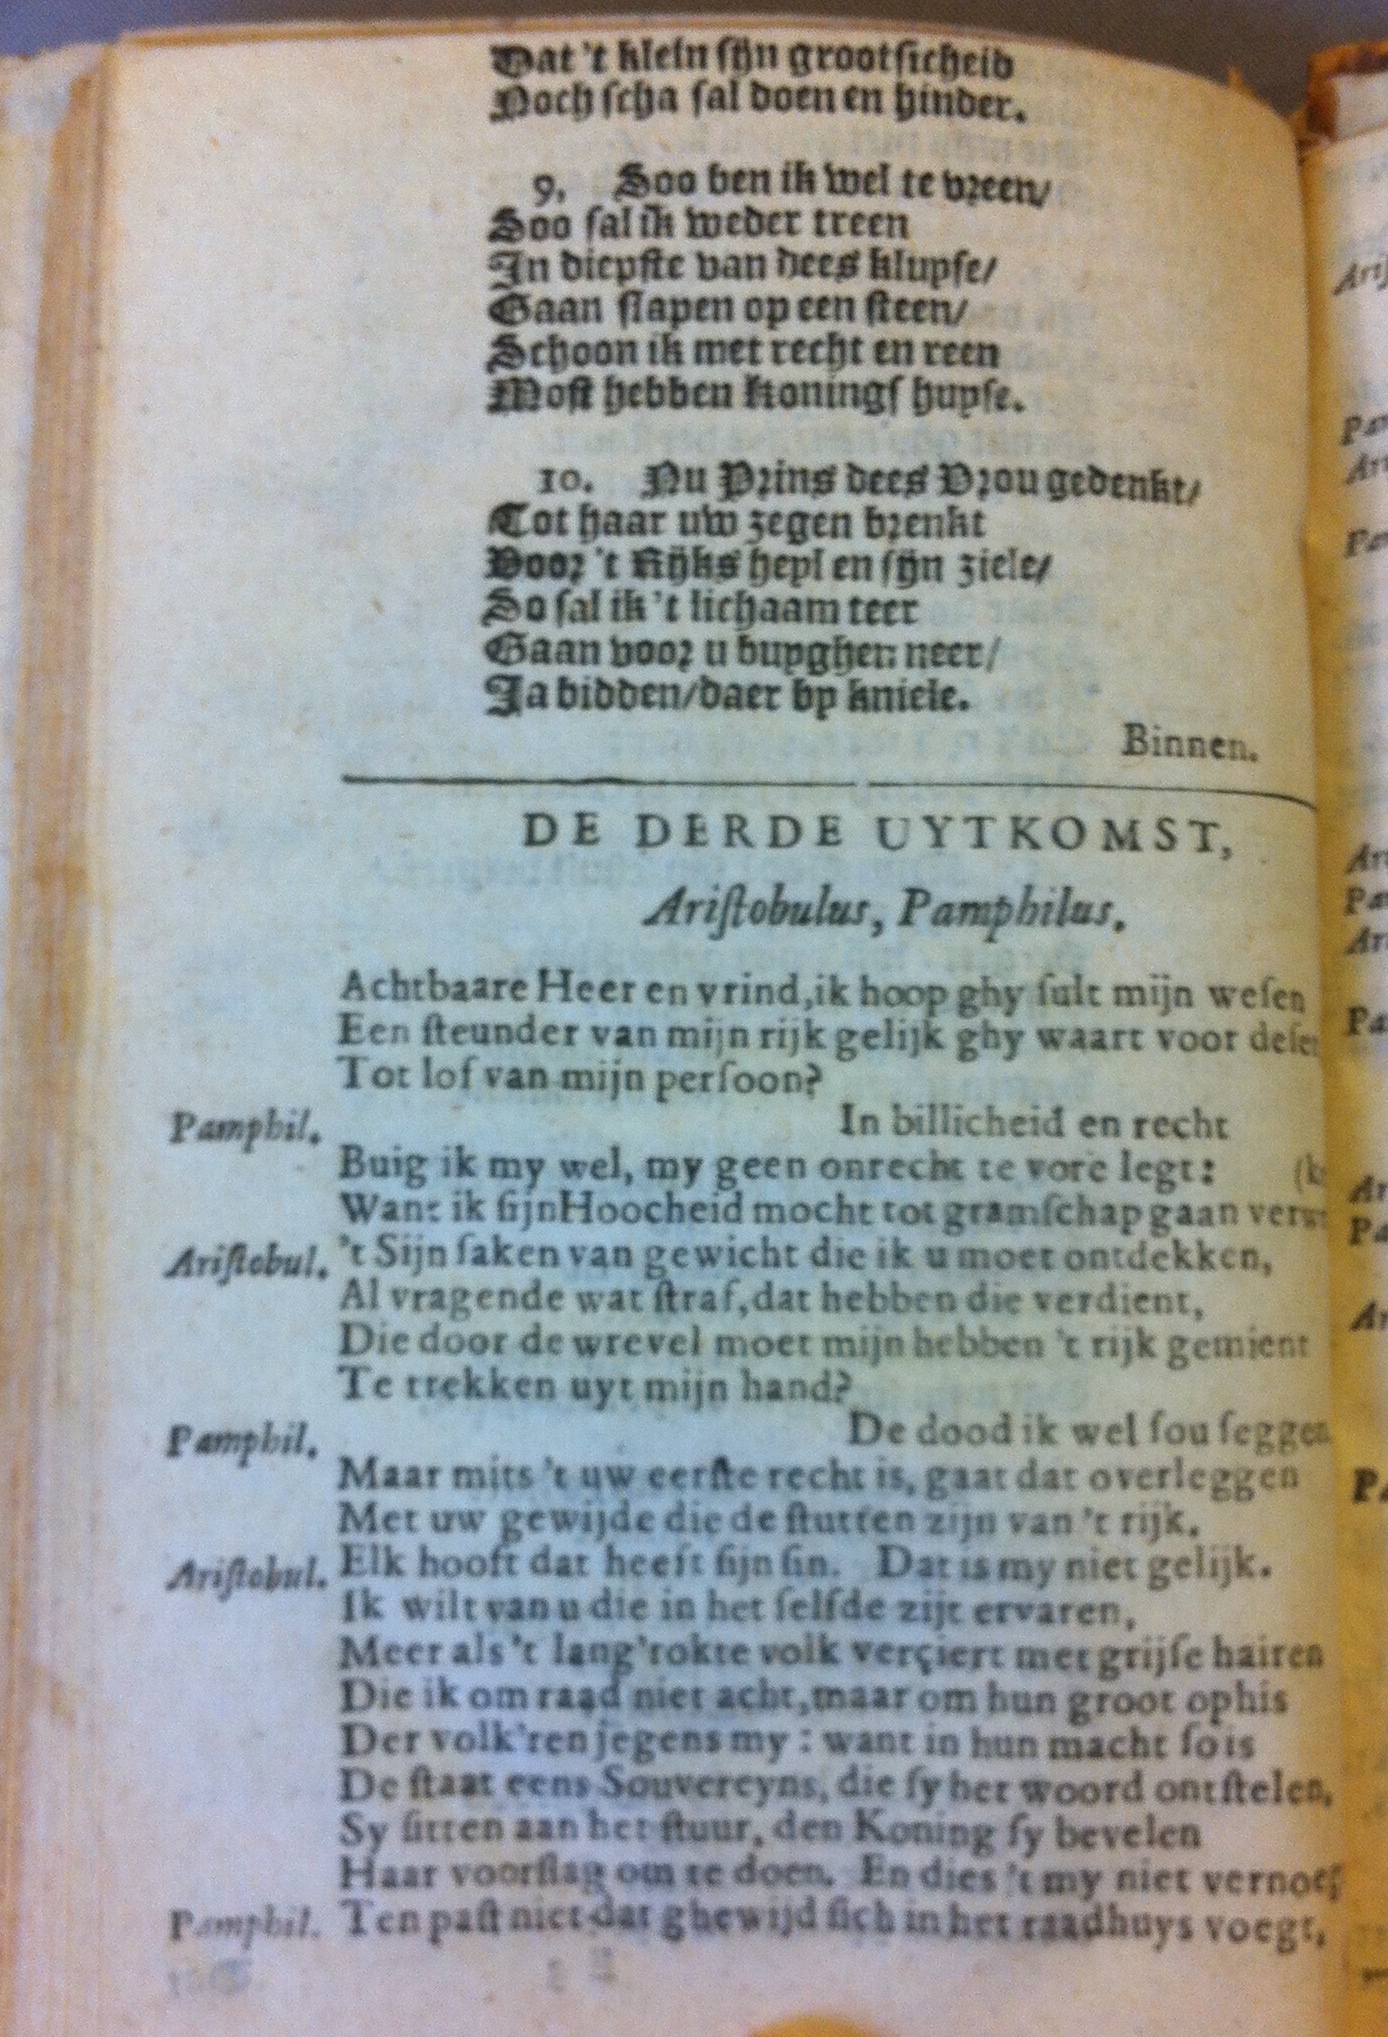 Dat 't klein sijn grootsicheid
Noch scha sal doen en hinder.
9, Soo ben ik wel te vreen/
Soo sal ik weder treen
In diepste van dees kluyse/
Gaan slapen op een steen/
Schoon ik met recht en reen
Most hebben konings huyse.
10. Nu Prins dees Vrou gedenkt/
Tot haar uw zegen brenkt
Voor 't Rijks heyl en sijn ziele/
So sal ik 't lichaam teer
Gaan voor u buyghen neer/
Ja bidden/daer by kniele.
Binnen.
DE DERDE UYTKOMST,
Aristobulus, Pamphilus.
Achtbaare Heer en vrind,ik hoop ghy sult mijn wesen
Een steunder van mijn rijk gelijk ghy waart voor desen
Tot lof van mijn persoon?
Pamphil. In billicheid en recht
Buig ik my wel, my geen onrecht te vore legt:
Want ik sijn Hoocheid mocht tot gramschap gaan
Aristobul. 't Sijn saken van gewicht die ik u moet ontdekken,
Al vragende wat straf,dat hebben die verdient,
Die door de wrevel moet mijn hebben 't rijk gemient
Te trekken uyt mijn hand?
Pamphil. De dood ik wel sou seggen
Maar mits 't uw eerste recht is, gaat dat overleggen
Met uw gewijde die de stutten zijn van 't rijk.
Aristobul. Elk hooft dat heeft sijn sin. Dat is my niet gelijk.
Ik wilt van u die in het selfde zijt ervaren,
Meer als 't lang'rokte volk verçiert met grijse hairen
Die ik om raad niet acht,maar om hun groot ophis
Der volk'ren jegens my : want in hun macht so is
De staat eens Souvereyns, die sy het woord ontstelen,
Sy sitten aan het stuur, den Koning sy bevelen
Haar voorslag om te doen. En dies 't my niet
Pamphil. Ten past niet dat ghewijd sich in het raadhuys voegt,